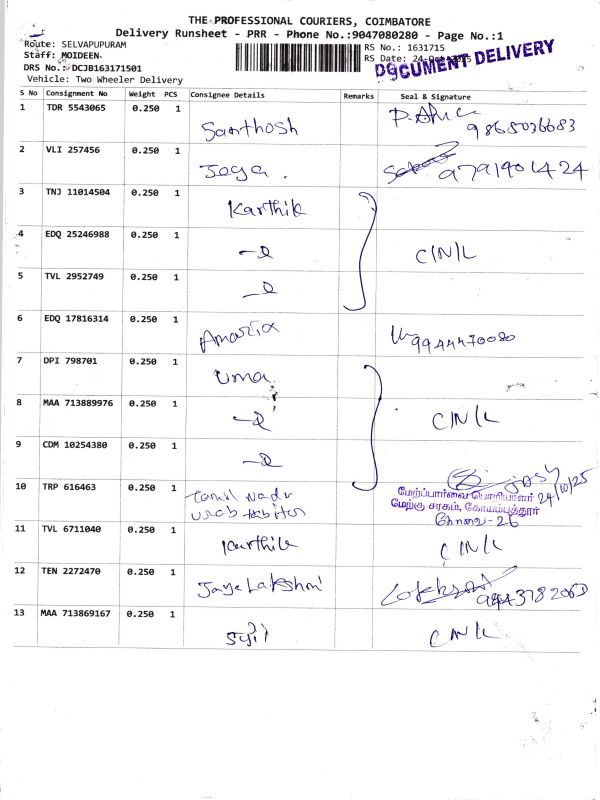 THE PROFESSIONAL COURIERS, COIMBATORE
Delivery Runsheet - PRR - Phone No.:9047080280 - Page No.:1
Route: SELVAPUPURAM
RS No.: 1631715
Staff: MOIDEEN
RS Date: 24-Oct-2025
DOCUMENT DELIVERY
DRS No.: DCJB163171501
Vehicle: Two Wheeler Delivery
S No Consignment No Weight PCS Consignee Details Remarks Seal & Signature
1 TDR 5543065 0.250 1 Santhosh 9865036683
2 VLI 257456 0.250 1 Jega. 9791901424
3 TNJ 11014504 0.250 1 Karthik
4 EDQ 25246988 0.250 1 C/N/L
5 TVL 2952749 0.250 1
6 EDQ 17816314 0.250 1 9944470080
7 DPI 798701 0.250 1 Uma
8 MAA 713889976 0.250 1 C/N/L
9 CDM 10254380 0.250 1
10 TRP 616463 0.250 1 Tamil Nadu 24/10/25
மேற்பார்வை பொறியாளர்
மேற்கு சரகம், கோயம்புத்தூர்
கோவை-26
11 TVL 6711040 0.250 1 Karthik C/N/L
12 TEN 2272470 0.250 1 Jaya Lakshmi
13 MAA 713869167 0.250 1 C/N/L